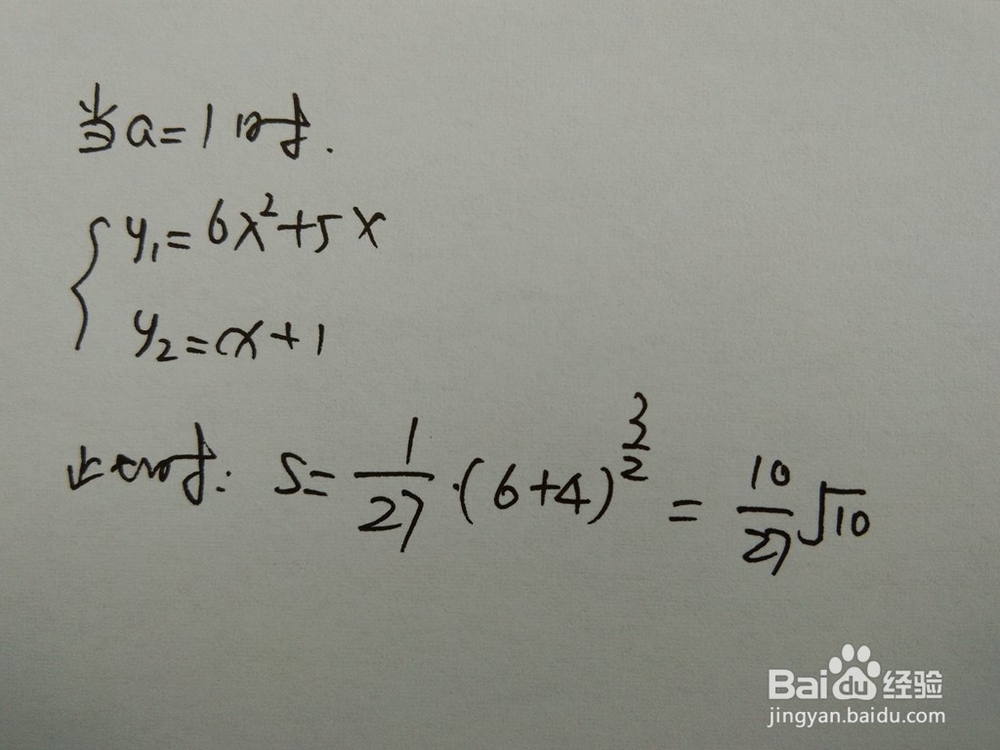 当a=1时.
y₁=6x²+5x
y₂=x+1
此时: S=1/27·(6+4)^(3/2)=10/27√10
Baidu经验
jingyan.baidu.com